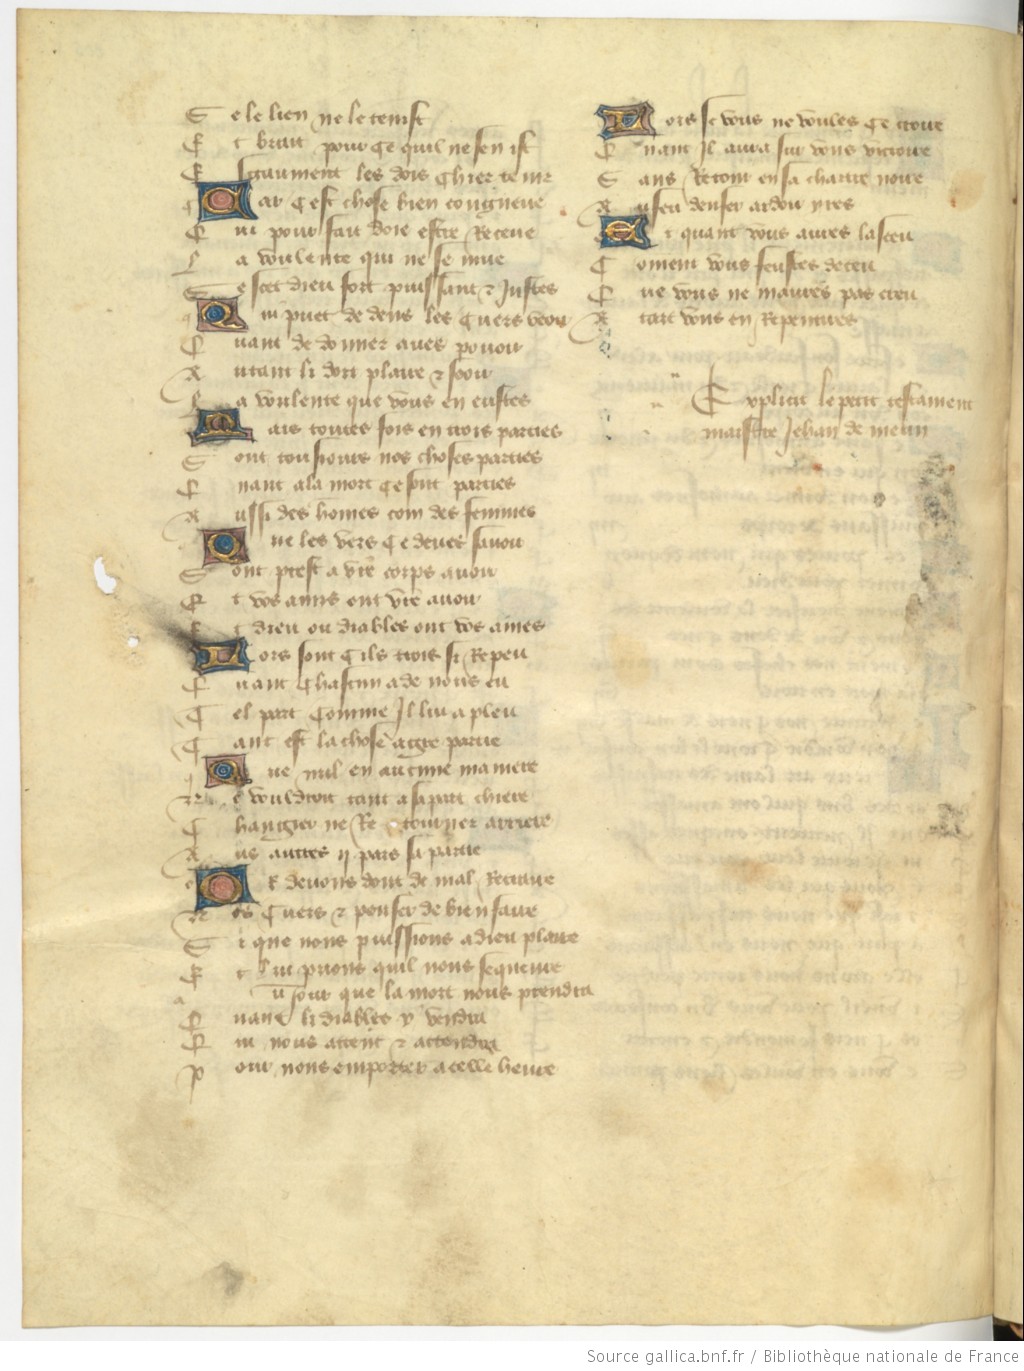 S e le lien ne le tenist
E t bruit pour ce quil nesen ist
E sgaument les dois chier tenir
C ar cest chose bien congneue
Q ui pour fait doie estre Receue
L a voulente qui ne se mue
S e scet dieu fort puissant ⁊ Justes
Q ui puet de dens les cuers veoir
Q uant de donner aues pouoir
A utant li doit plaire ⁊ seoir
L a voulente que vous en eustes
M ais toutes fois en trois parties
S ont tousiours nos choses parties
Q uant ala mort ce sont parties
A ussi des homes com des femmes
Q ue les vers ce deues sauoir
S ont prest a vre corps auoir
E t vos amis ont vre auoir
E t dieu ou diables ont vos ames
L ors sont cils trois si Repeu
Q uant chascun a de nous eu
T el part comme Il lui a pleu
T ant est la chose a partie
Q ue nul en aucune maniere
N e vouldroit tant a sa part chiere
C hangier ne Re tourner arriere
A us autres ij pars sa partie
O r deuons dont de mal Retraire
N os cuers ⁊ penser de bien faire
S i que nous puissions a dieu plaire
E t lui prions quil nous sequeure
A u jour que la mort nous prendra
Q uant li diables y vendra
Q ui nous attent ⁊ attendra
P our nous emporter a celle heure
L ors se vous ne voules ce croire
Q uant Il aura sur vous victoire
S ans Retour en sa chartre noire
A u feu denfer ardoir yres
E t quant vous aures la sceu
C oment vous feustes deceu
Q ue vous ne maures pas creu
A tart vous en Repentires
Explicit le petit testament
maistre Jehan de meun
Source gallica.bnf.fr / Bibliothèque nationale de France